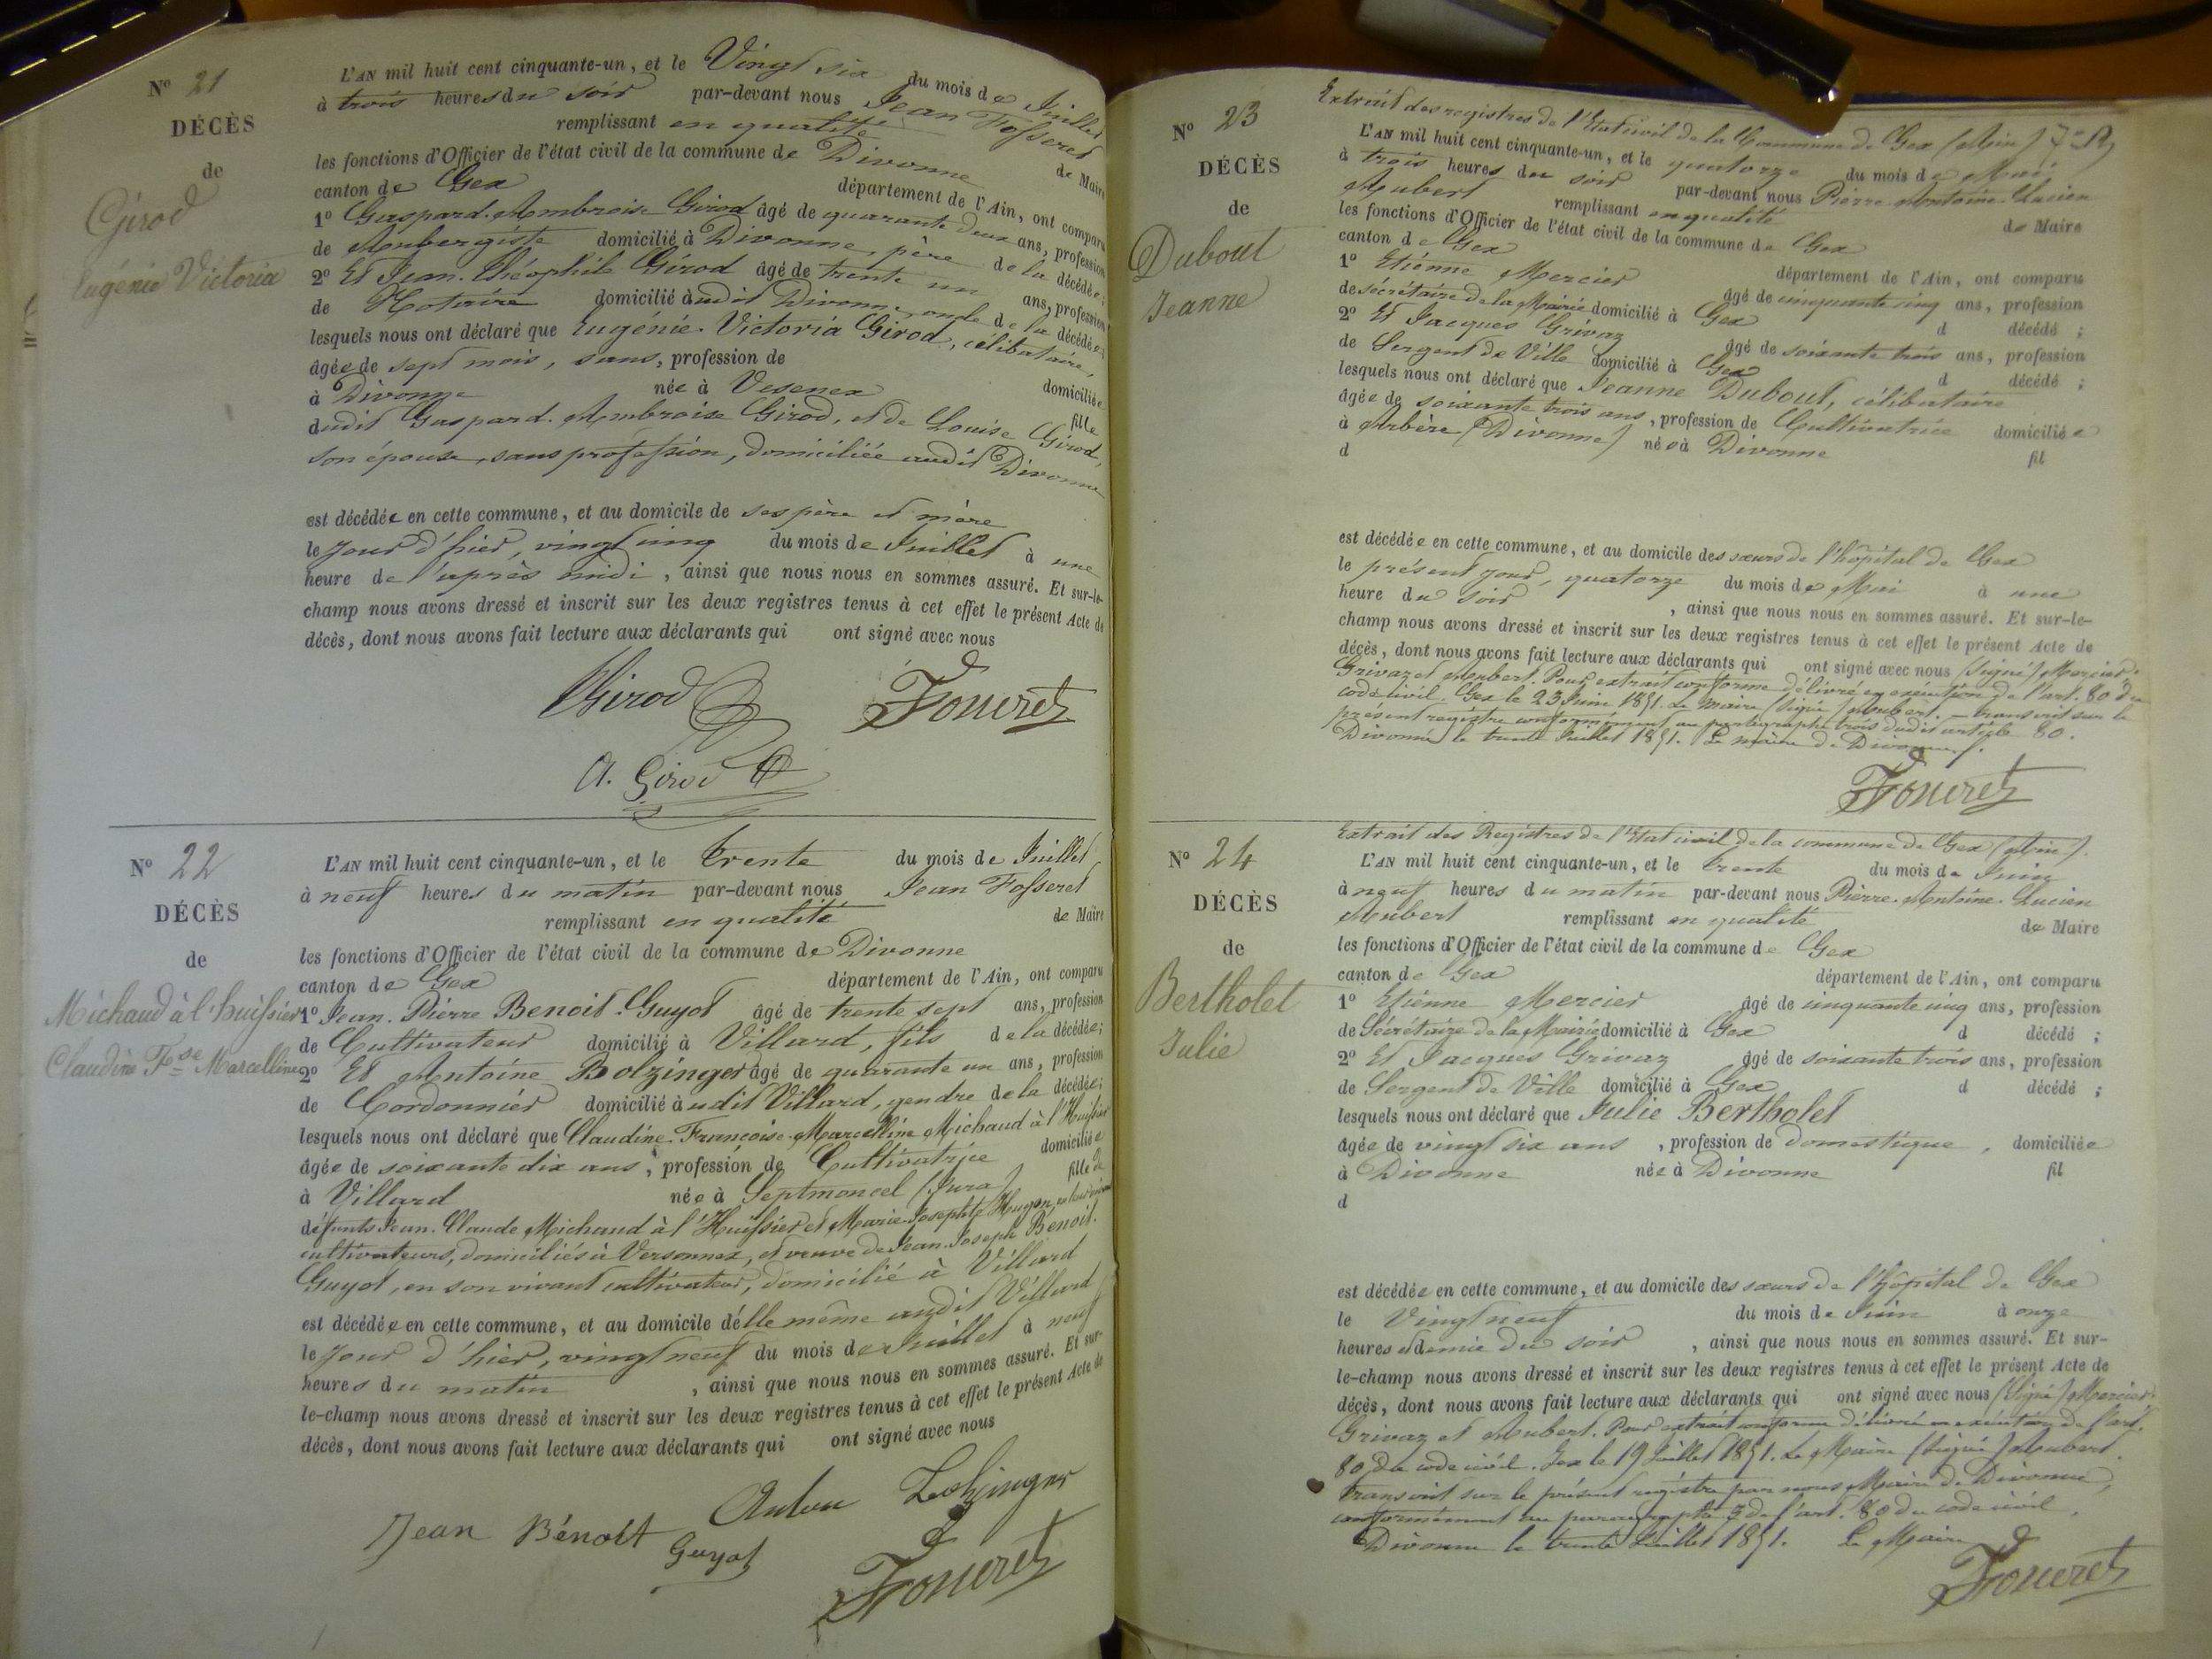 N° 21
DÉCÈS
de
Girod
Eugénie Victoria
L'AN mil huit cent cinquante-un, et le Vingt six du mois de Juillet
à trois heures du soir par-devant nous Jean Fosseret
remplissant en qualité de Maire
les fonctions d'Officier de l'état civil de la commune de Divonne
canton de Gex département de l'Ain, ont comparu
1° Gaspard-Ambroise Girod âgé de quarante deux ans, profession
de Aubergiste domicilié à Divonne, père de la décédée;
2° Et Jean-Théophile Girod âgé de trente un ans, profession
de Notaire domicilié àudit Divonne, oncle de la décédée;
lesquels nous ont déclaré que Eugénie-Victoria Girod, célibataire,
âgée de sept mois, sans, profession de domiciliée
à Divonne née à Vesenex fille
dudit Gaspard-Ambroise Girod, et de Louise Girod,
son épouse, sans profession, domiciliée audit Divonne
est décédée en cette commune, et au domicile de ses père et mère
le jour d'hier, vingt cinq du mois de Juillet à une
heure de l'après midi, ainsi que nous nous en sommes assuré. Et sur-le-
champ nous avons dressé et inscrit sur les deux registres tenus à cet effet le présent Acte de
décès, dont nous avons fait lecture aux déclarants qui ont signé avec nous
Girod Fosseret
A. Girod
N° 22
DÉCÈS
de
Michaud à l'huissier
Claudine Fse Marcelline
L'AN mil huit cent cinquante-un, et le trente du mois de Juillet
à neuf heures du matin par-devant nous Jean Fosseret
remplissant en qualité de Maire
les fonctions d'Officier de l'état civil de la commune de Divonne
canton de Gex département de l'Ain, ont comparu
1° Jean-Pierre Benoit-Guyot âgé de trente sept ans, profession
de Cultivateur domicilié à Villard, fils de la décédée;
2° Et Antoine Bolzinger âgé de quarante un ans, profession
de Cordonnier domicilié àudit Villard, gendre de la décédée;
lesquels nous ont déclaré que Claudine-Françoise-Marcelline Michaud à l'Huissier
âgée de soixante dix ans, profession de Cultivatrice domiciliée
à Villard née à Septmoncel (Jura) fille de
défunts Jean-Claude Michaud à l'Huissier et Marie-Josephte Hugon, en leur vivant
cultivateurs, domiciliés à Versonnex, et veuve de Jean-Joseph Benoit-
Guyot, en son vivant cultivateur, domicilié à Villard
est décédée en cette commune, et au domicile d'elle même audit Villard
le jour d'hier, vingt neuf du mois de Juillet à neuf
heures du matin, ainsi que nous nous en sommes assuré. Et sur-
le-champ nous avons dressé et inscrit sur les deux registres tenus à cet effet le présent Acte de
décès, dont nous avons fait lecture aux déclarants qui ont signé avec nous
Jean Bénoit Guyot
Fosseret
N° 23
DÉCÈS
de
Dubout
Jeanne
Extrait des registres de l'Etat civil de la Commune de Gex (Ain)
L'AN mil huit cent cinquante-un, et le quatorze du mois de Mai
à trois heures du soir par-devant nous Pierre-Antoine-Lucien
Aubert remplissant en qualité de Maire
les fonctions d'Officier de l'état civil de la commune de Gex
canton de Gex département de l'Ain, ont comparu
1° Etiènne Mercier âgé de cinquante cinq ans, profession
de secrétaire de la Mairie domicilié à Gex d décédé ;
2° Et Jacques Grivaz âgé de soixante trois ans, profession
de Sergent de Ville domicilié à Gex d décédé ;
lesquels nous ont déclaré que Jeanne Dubout, célibataire
âgée de soixante trois ans, profession de Cultivatrice domiciliée
à Arbère (Divonne) née à Divonne fil
d
est décédée en cette commune, et au domicile des sœurs de l'hôpital de Gex
le présent jour, quatorze du mois de Mai à une
heure du soir, ainsi que nous nous en sommes assuré. Et sur-le-
champ nous avons dressé et inscrit sur les deux registres tenus à cet effet le présent Acte de
décès, dont nous avons fait lecture aux déclarants qui ont signé avec nous (Signé) Mercier
Grivaz et Aubert. Pour extrait conforme délivré en exécution de l'art. 80 du
code civil. Gex le 23 Juin 1851. Le Maire (Signé) Aubert. — transcrit sur le
présent registre conformément au paragraphe trois dudit article 80.
Divonne le trente Juillet 1851. Le maire de Divonne
Fosseret
N° 24
DÉCÈS
de
Bertholet
Julie
Extrait des Registres de l'Etat civil de la commune de Gex (Ain).
L'AN mil huit cent cinquante-un, et le trente du mois de Juin
à neuf heures du matin par-devant nous Pierre-Antoine-Lucien
Aubert remplissant en qualité de Maire
les fonctions d'Officier de l'état civil de la commune de Gex
canton de Gex département de l'Ain, ont comparu
1° Etiénne Mercier âgé de cinquante cinq ans, profession
de Sécrétaire de la Mairie domicilié à Gex d décédé ;
2° Et Jacques Grivaz âgé de soixante trois ans, profession
de Sergent de Ville domicilié à Gex d décédé ;
lesquels nous ont déclaré que Julie Bertholet
âgée de vingt six ans, profession de domestique, domiciliée
à Divonne née à Divonne fil
d
est décédée en cette commune, et au domicile des sœurs de l'hôpital de Gex
le Vingt neuf du mois de Juin à onze
heures et demie du soir, ainsi que nous nous en sommes assuré. Et sur-
le-champ nous avons dressé et inscrit sur les deux registres tenus à cet effet le présent Acte de
décès, dont nous avons fait lecture aux déclarants qui ont signé avec nous (Signé) Mercier
Grivaz et Aubert. Pour extrait conforme délivré en exécution de l'art.
80 du code civil. Gex le 19 Juillet 1851. Le Maire (Signé) Aubert
transcrit sur le présent régistre par nous Maire de Divonne,
conformément au paragraphe 3 de l'art. 80 du code civil.
Divonne le trente Juillet 1851. Le Maire
Fosseret